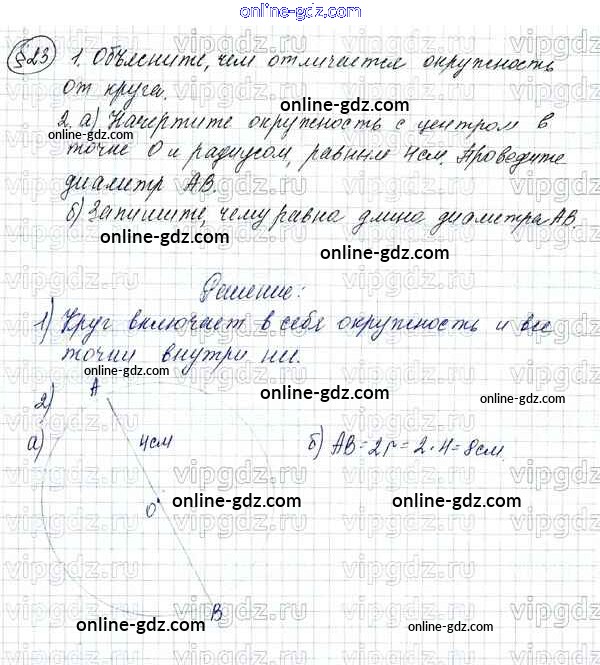 online-gdz.com
§23 1. Объясните, чем отличается окружность
от круга.
online-gdz.com
2. а) Начертите окружность с центром в
точке О и радиусом, равным 4см. Проведите
диаметр АВ.
б) Запишите, чему равна длина диаметра АВ.
online-gdz.com online-gdz.com
Решение:
1) Круг включает в себя окружность и все
точки внутри неё.
online-gdz.com
А online-gdz.com
2)
а) 4см б) АВ=2r=2·4=8см.
О online-gdz.com online-gdz.com
В
online-gdz.com online-gdz.com
vipgdz.ru